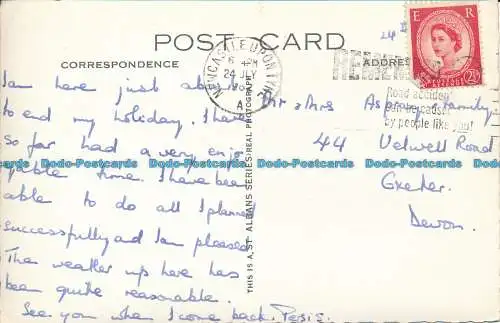 POST CARD
CORRESPONDENCE
ADDRESS
E R
POSTAGE REVENUE
2½D
NEWCASTLE UPON TYNE
24
A
REMEMBER
Road accidents
can be caused
by people like you!
I am have just about
to end my holiday. I have
so far had a very enjo
yable time. I have been
able to do all I planned
successfully and I am pleased
The weather up here has
been quite reasonable.
See you when I come back.
Mr & Mrs Asprey & Family
44 Velwell Road
Exeter
Devon.
THIS IS A ST ALBANS SERIES REAL PHOTOGRAPH
Dodo-Postcards Dodo-Postcards Dodo-Postcards Dodo-Postcards Dodo-Postcards Dodo-Postcards